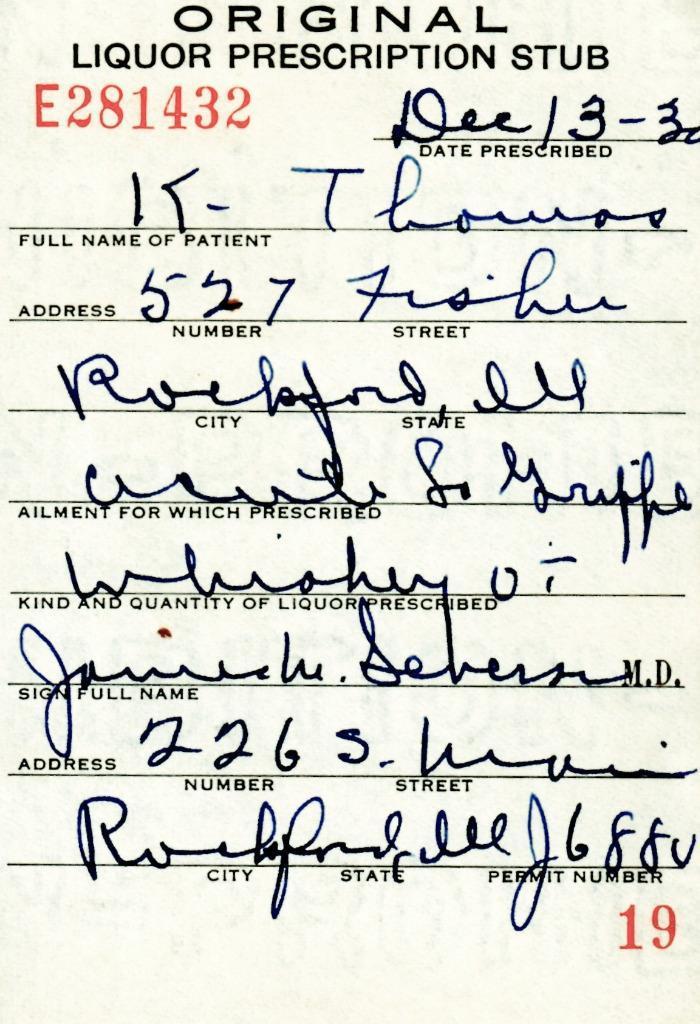 ORIGINAL
LIQUOR PRESCRIPTION STUB
E281432
Dec 13-30
DATE PRESCRIBED
K- Thomas
FULL NAME OF PATIENT
527 Fisher
ADDRESS NUMBER STREET
Rockford, Ill
CITY STATE
acute La Grippe
AILMENT FOR WHICH PRESCRIBED
Whiskey
KIND AND QUANTITY OF LIQUOR PRESCRIBED
M.D.
SIGN FULL NAME
226 S. Main
ADDRESS NUMBER STREET
Rockford, Ill
CITY STATE PERMIT NUMBER
19